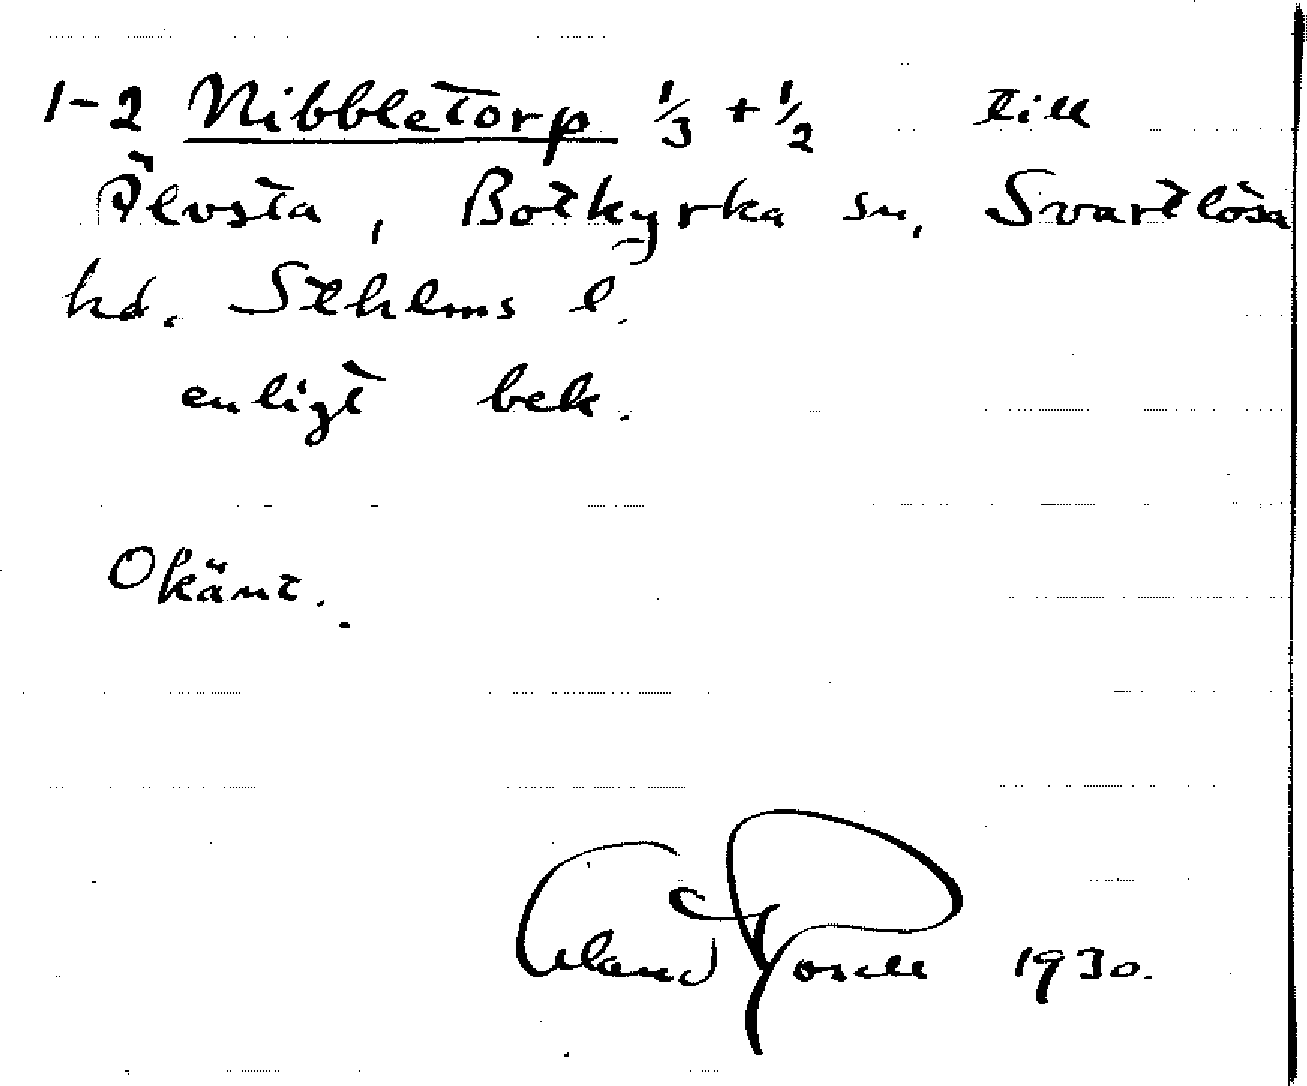 1-2 Nibbletorp 1/3 + 1/2 till
Älvsta, Botkyrka sn, Svartlösa
hd. Sthlms l.
enligt bek.
Okänt.
Erland Rosell 1930.